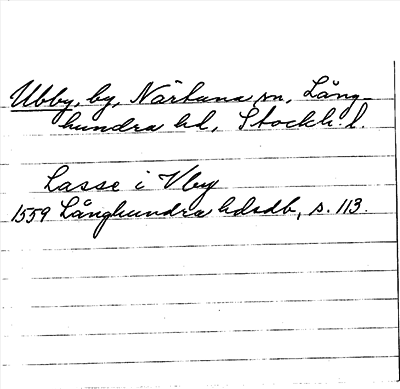 Ubby, by, Närtuna sn, Lång-
hundra hd, Stockh. l.
Lasse i Vby
1559 Långhundra hdsdb, s. 113.